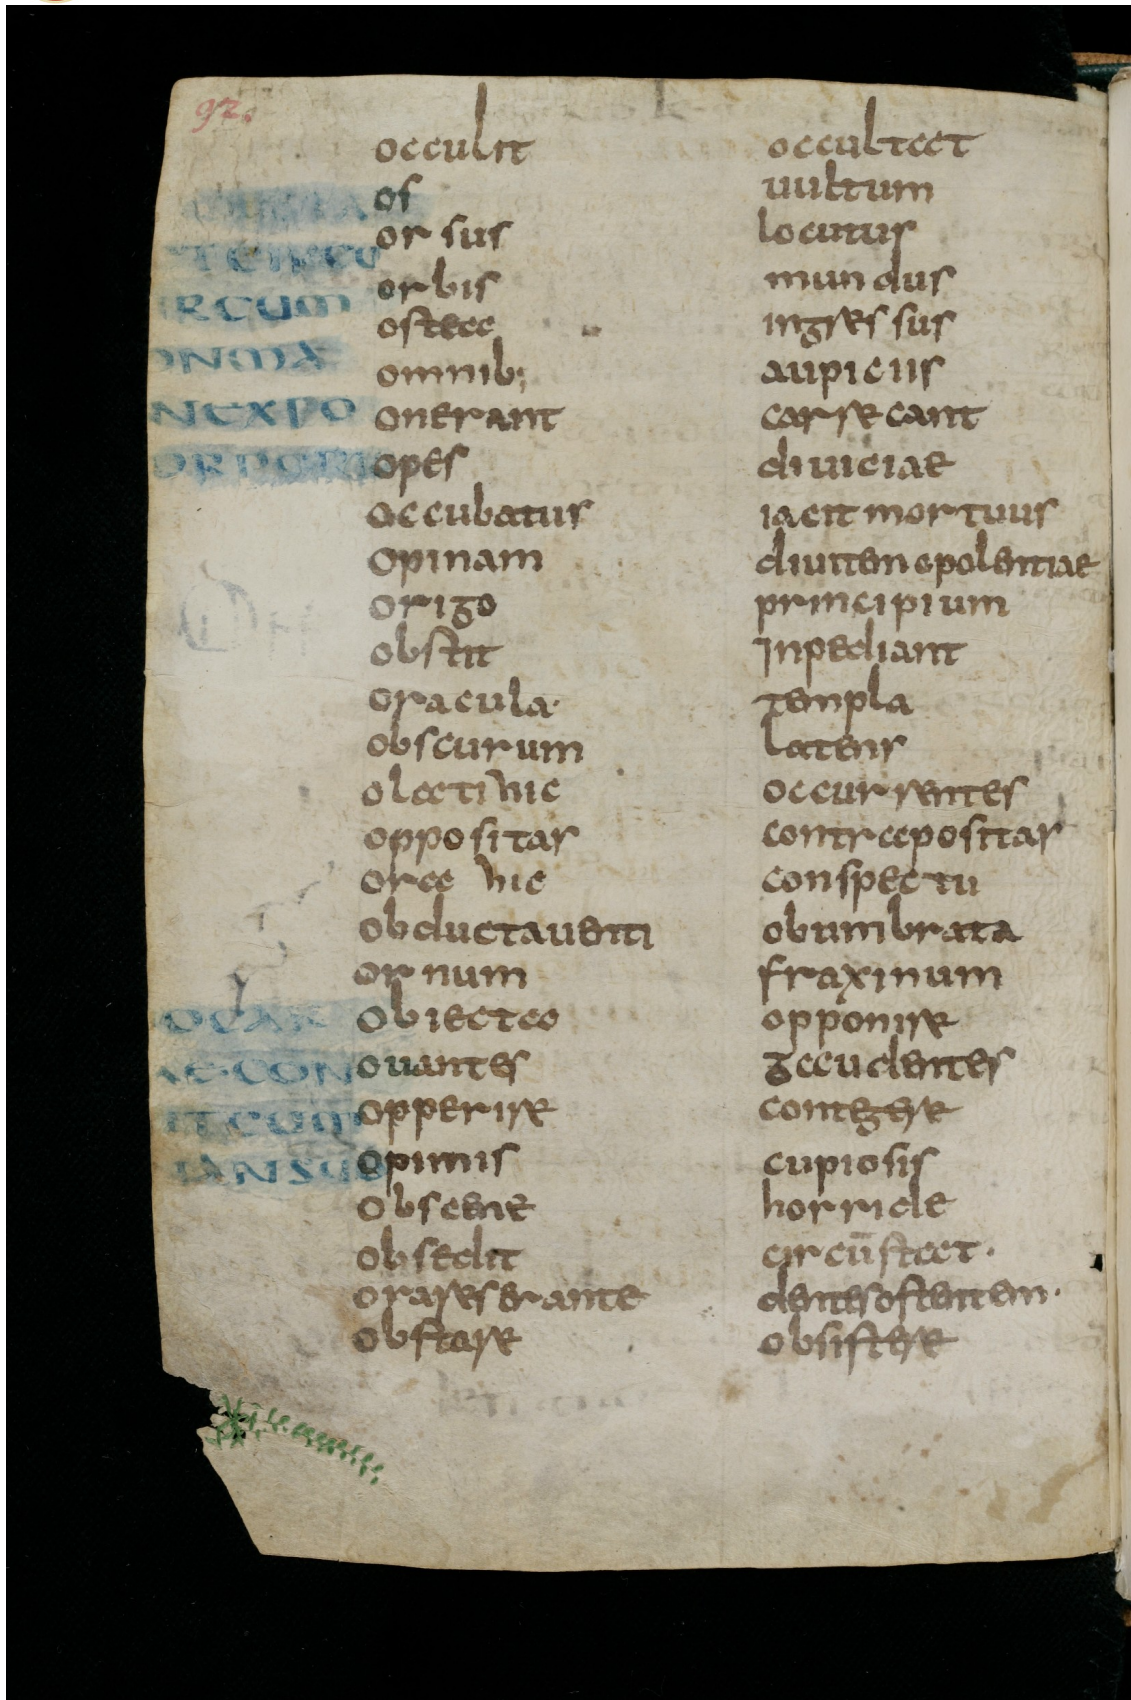 92.
occulit occultat
os uultum
orsus locutus
orbis mundus
ostea ingressus
omnib; aupiciis
onerant carrecant
opes diuiciae
occubatus iacit mortuus
opinam diuitem opolentiae
origo principium
obstit inpediant
oracula. templa
obscurum latens
oleati hic occurrentes
oppositas contrapositas
ora hic conspectu
obductauenti obumbrata
ornum fraxinum
obiecteo opponire
ouantes gaudentes
opperire contegere
opimis cupiosis
obscene horride
obsedit circūstat.
orareserante dentesostentem.
obstare obsistere
RCUM
ONMA
NEXPO